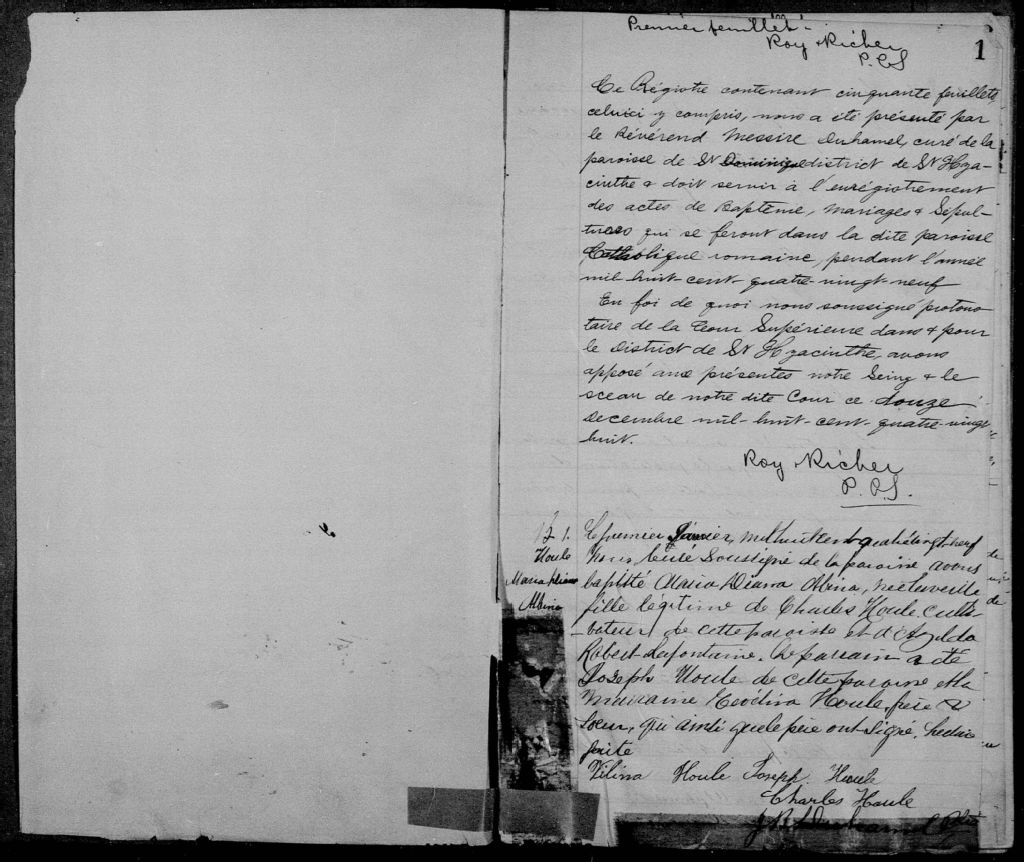 Premier feuillet -
Roy & Richer
P.C.S
1
Ce Régistre contenant cinquante feuillets,
celuici y compris, nous a été présenté par
le Révérend Messire Duhamel, curé de la
paroisse de St Dominique district de St Hya-
cinthe & doit servir à l'enrégistrement
des actes de Baptême, Mariages & Sépul-
tures qui se feront dans la dite paroisse
Catholique romaine, pendant l'année
mil-huit-cent-quatre-vingt-neuf
En foi de quoi nous soussigné protono-
taire de la Cour Supérieure dans & pour
le District de St Hyacinthe, avons
apposé aux présentes notre Seing & le
sceau de notre dite Cour ce douze
Decembre mil-huit-cent-quatre-vingt
huit.
Roy & Richer
P.C.S.
B 1.
Houle
Maria Diana
Albina
Le premier Janvier, mil huit cent quatre vingt neuf
Nous Curé Soussigné de la paroisse avons
baptisé Maria Diana Albina, née la veille
fille légitime de Charles Houle culti-
vateur, de cette paroisse et d'Azilda
Robert Lafontaine. Le parrain a été
Joseph Houle de cette paroisse et la
marraine Houle, frère &
soeur, qui ainsi que le père ont signé, lecture
faite
Houle Joseph Houle
Charles Houle
Duhamel Ptre